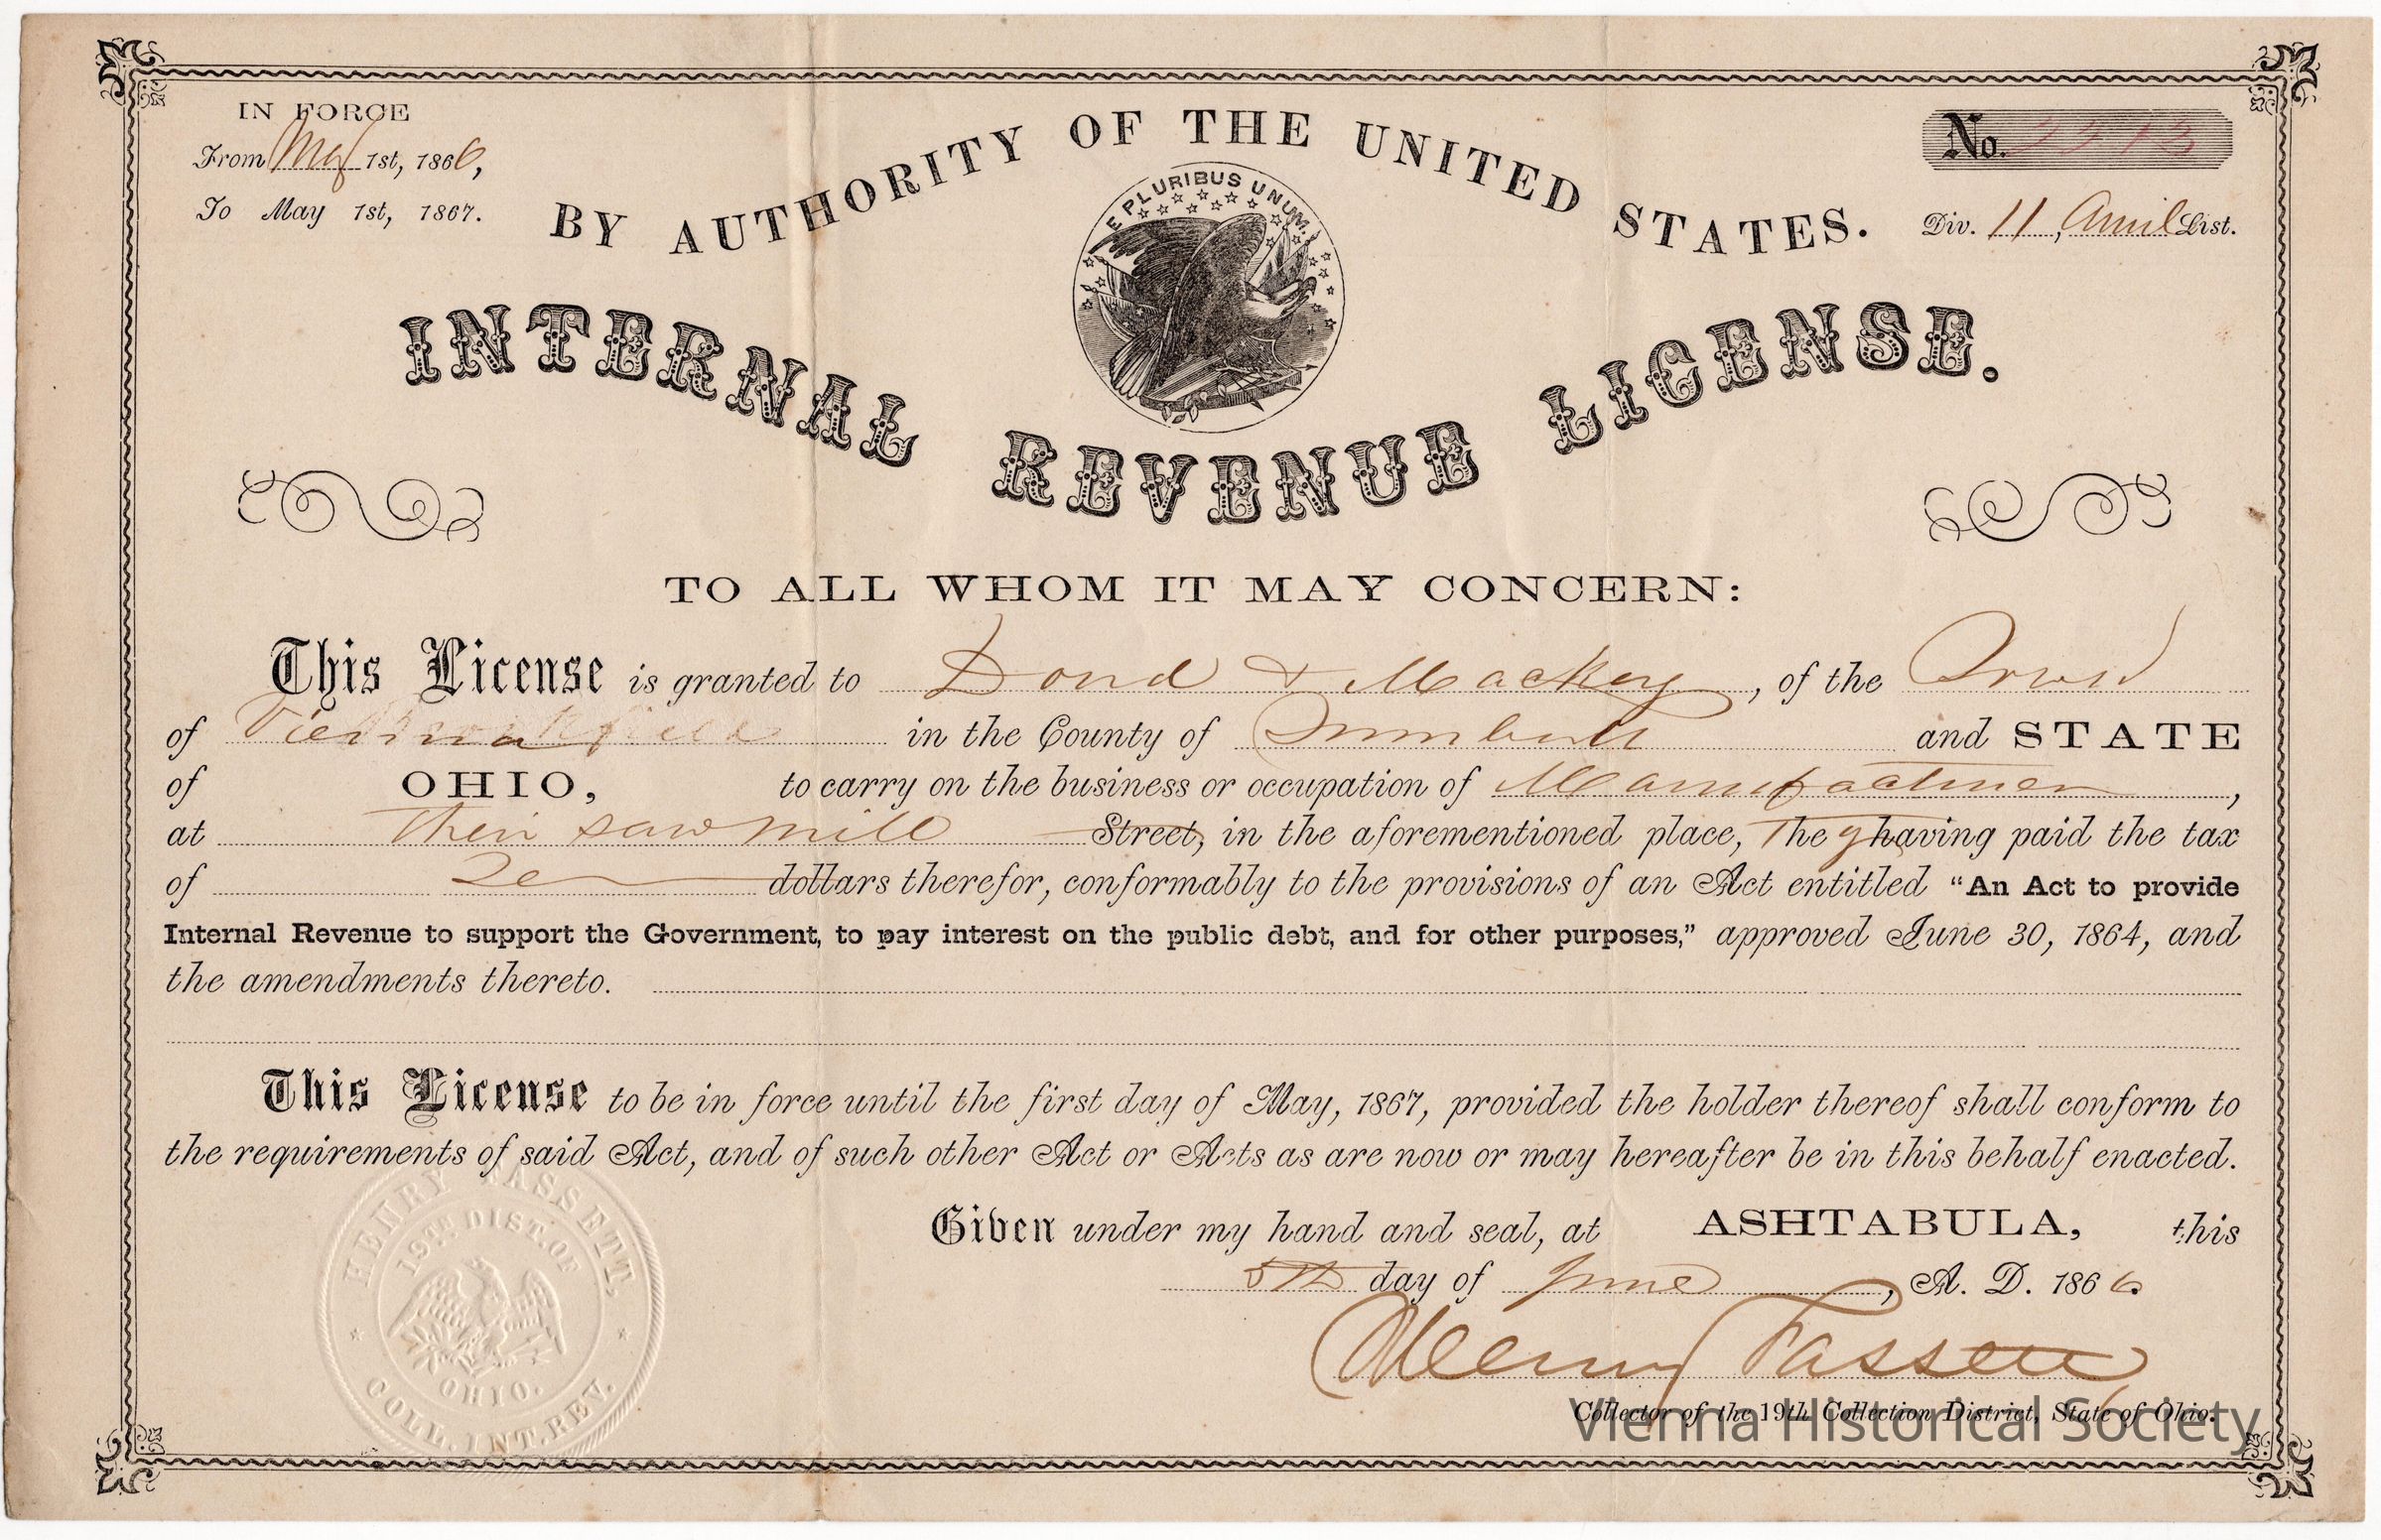 IN FORCE
From May 1st, 1866,
To May 1st, 1867.
BY AUTHORITY OF THE UNITED STATES.
No. 3313
Div. 11, April List.
E PLURIBUS UNUM.
INTERNAL REVENUE LICENSE.
TO ALL WHOM IT MAY CONCERN:
This License is granted to Doud & Mackey, of the Town
of Vienna in the County of Trumbull and STATE
of OHIO, to carry on the business or occupation of Manufacturer,
at Their saw mill Street, in the aforementioned place, They having paid the tax
of Ten dollars therefor, conformably to the provisions of an Act entitled "An Act to provide
Internal Revenue to support the Government, to pay interest on the public debt, and for other purposes," approved June 30, 1864, and
the amendments thereto.
This License to be in force until the first day of May, 1867, provided the holder thereof shall conform to
the requirements of said Act, and of such other Act or Acts as are now or may hereafter be in this behalf enacted.
Given under my hand and seal, at ASHTABULA, this
5th day of June, A. D. 1866.
Henry Fassett
Collector of the 19th Collection District, State of Ohio.
HENRY FASSETT,
19TH DIST. OF
OHIO.
COLL. INT. REV.
Vienna Historical Society